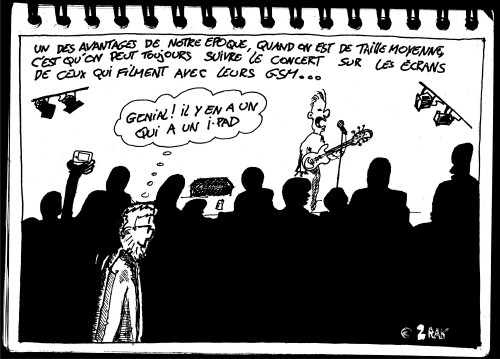 UN DES AVANTAGES DE NOTRE EPOQUE, QUAND ON EST DE TAILLE MOYENNE,
C'EST QU'ON PEUT TOUJOURS SUIVRE LE CONCERT SUR LES ÉCRANS
DE CEUX QUI FILMENT AVEC LEURS GSM...
GENIAL! IL Y EN A UN
QUI A UN I-PAD
© 2RAK